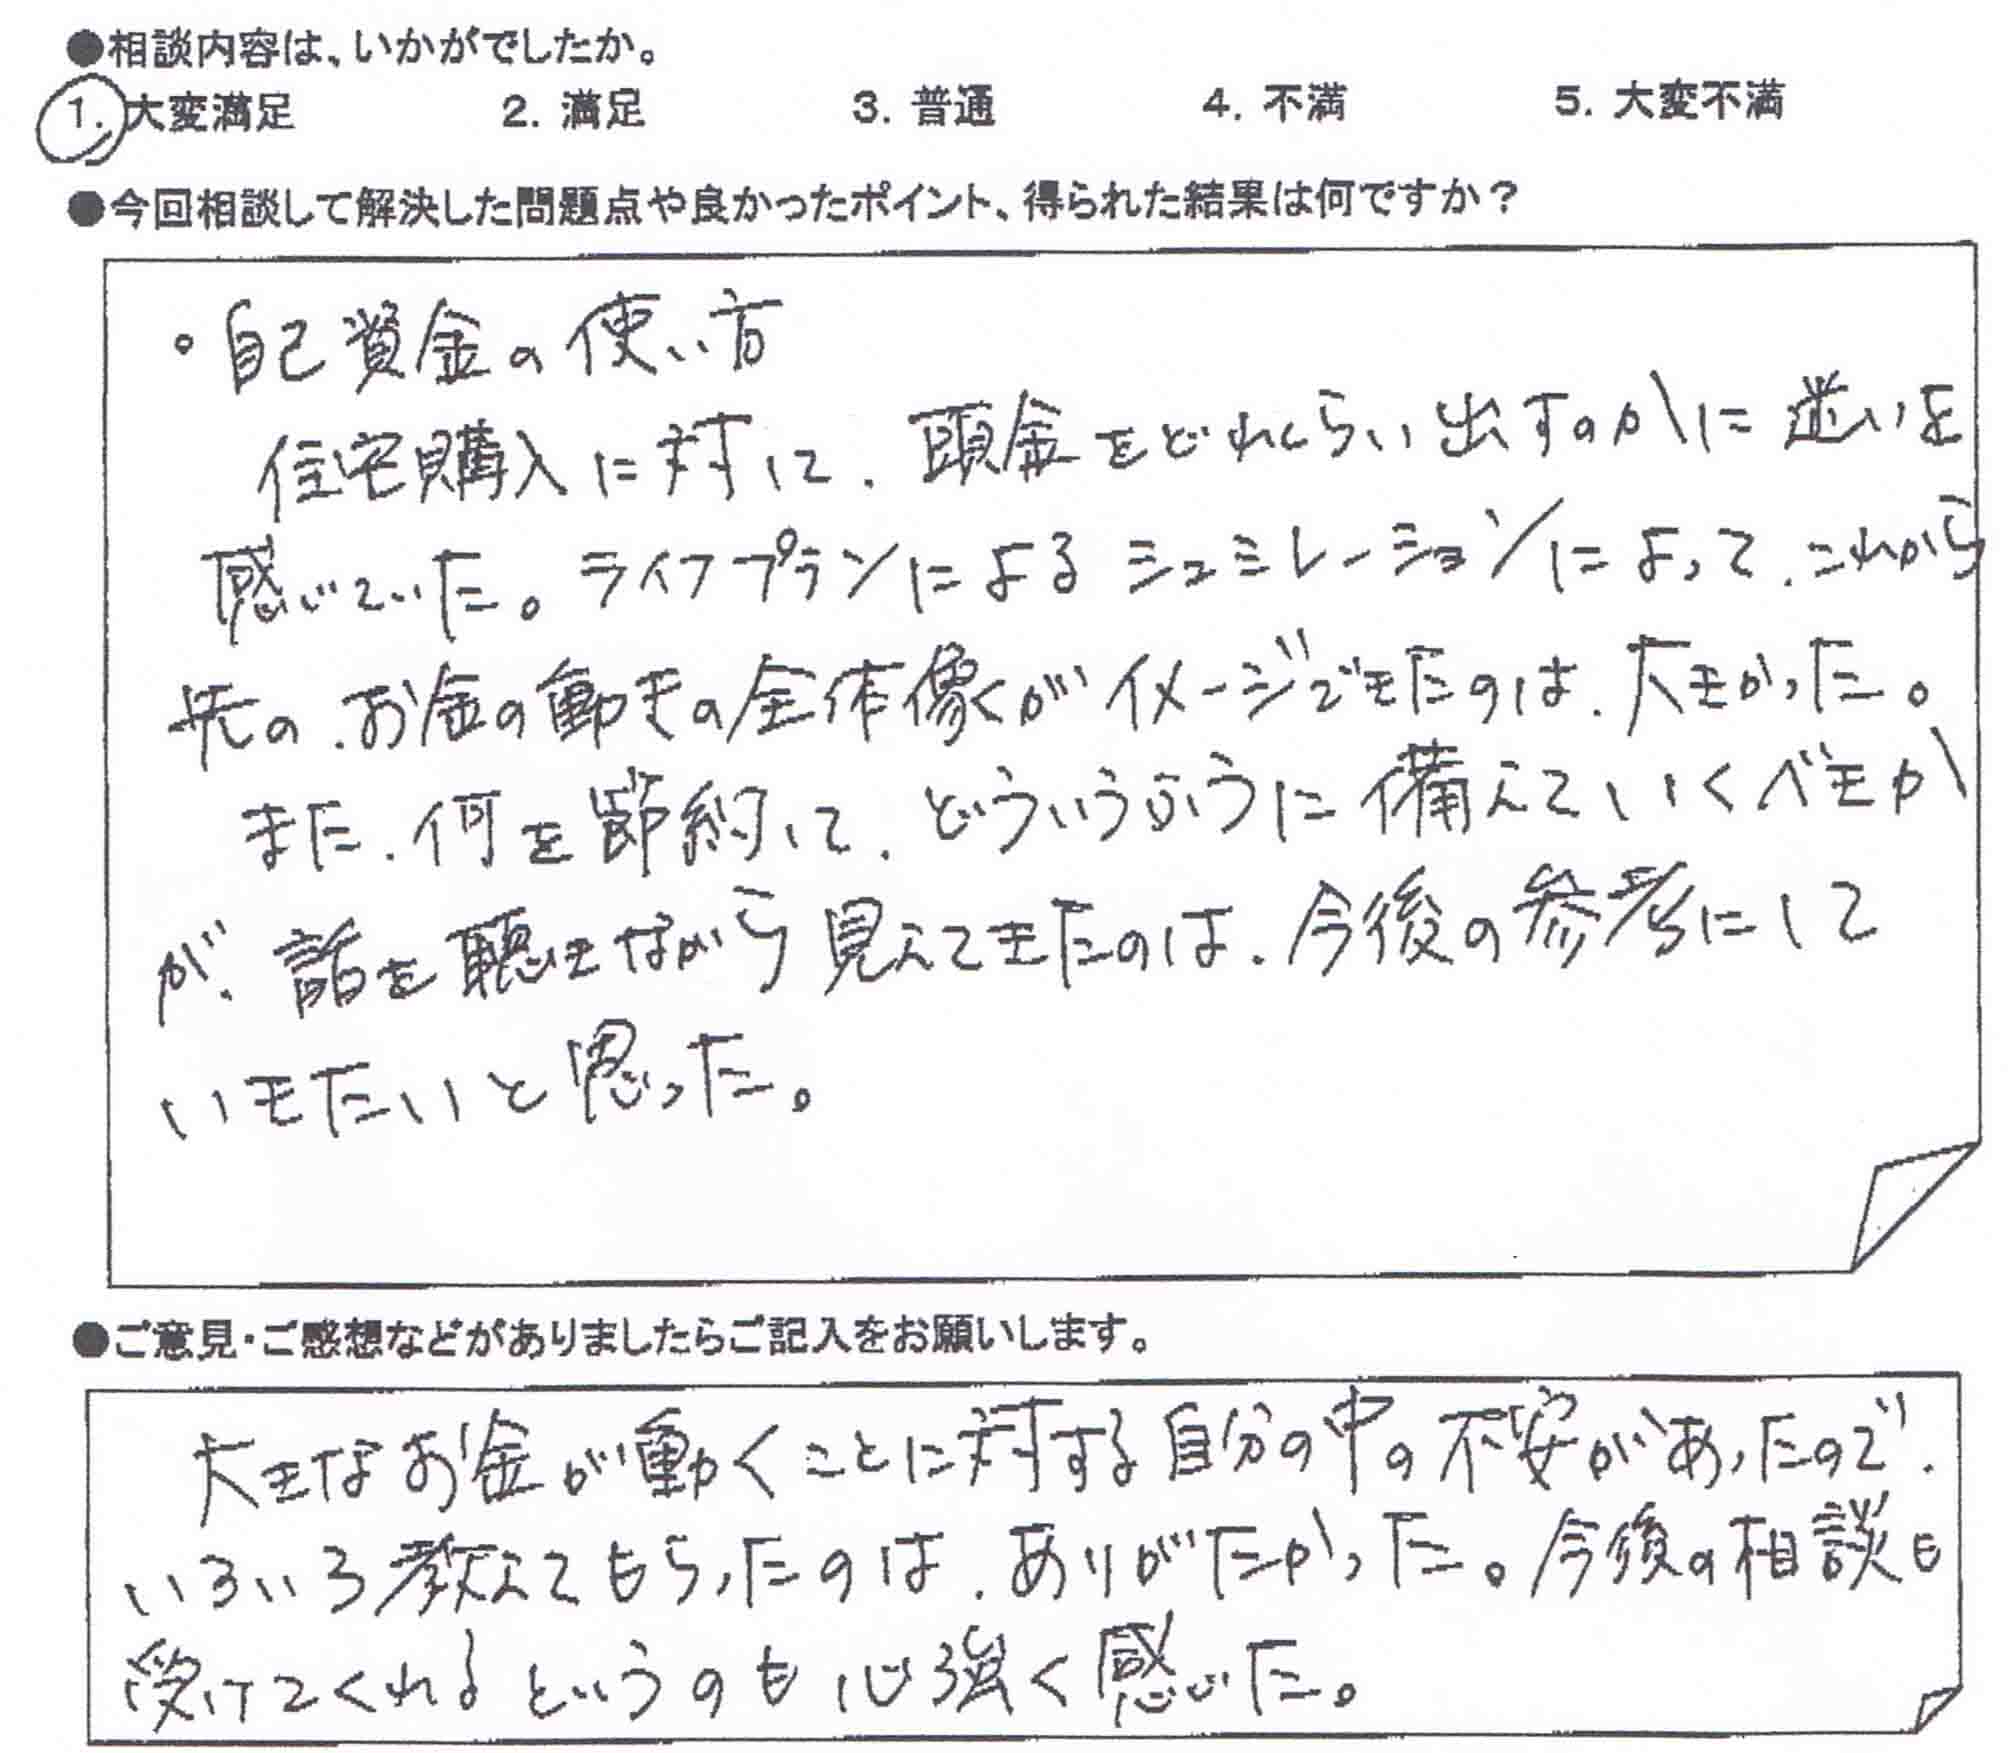 ●相談内容は、いかがでしたか。
1. 大変満足 2. 満足 3. 普通 4. 不満 5. 大変不満
●今回相談して解決した問題点や良かったポイント、得られた結果は何ですか？
・自己資金の使い方
住宅購入に対して、頭金をどれくらい出すのかに迷いを
感じていた。ライフプランによるシュミレーションによって、これから
先の、お金の動きの全体像がイメージできたのは、大きかった。
また、何を節約して、どういうふうに備えていくべきか
が、話を聴きながら見えてきたのは、今後の参考にして
いきたいと思った。
●ご意見・ご感想などがありましたらご記入をお願いします。
大きなお金が動くことに対する自分の中の不安があったので、
いろいろ教えてもらったのは、ありがたかった。今後の相談も
受けてくれるというのも心強く感じた。